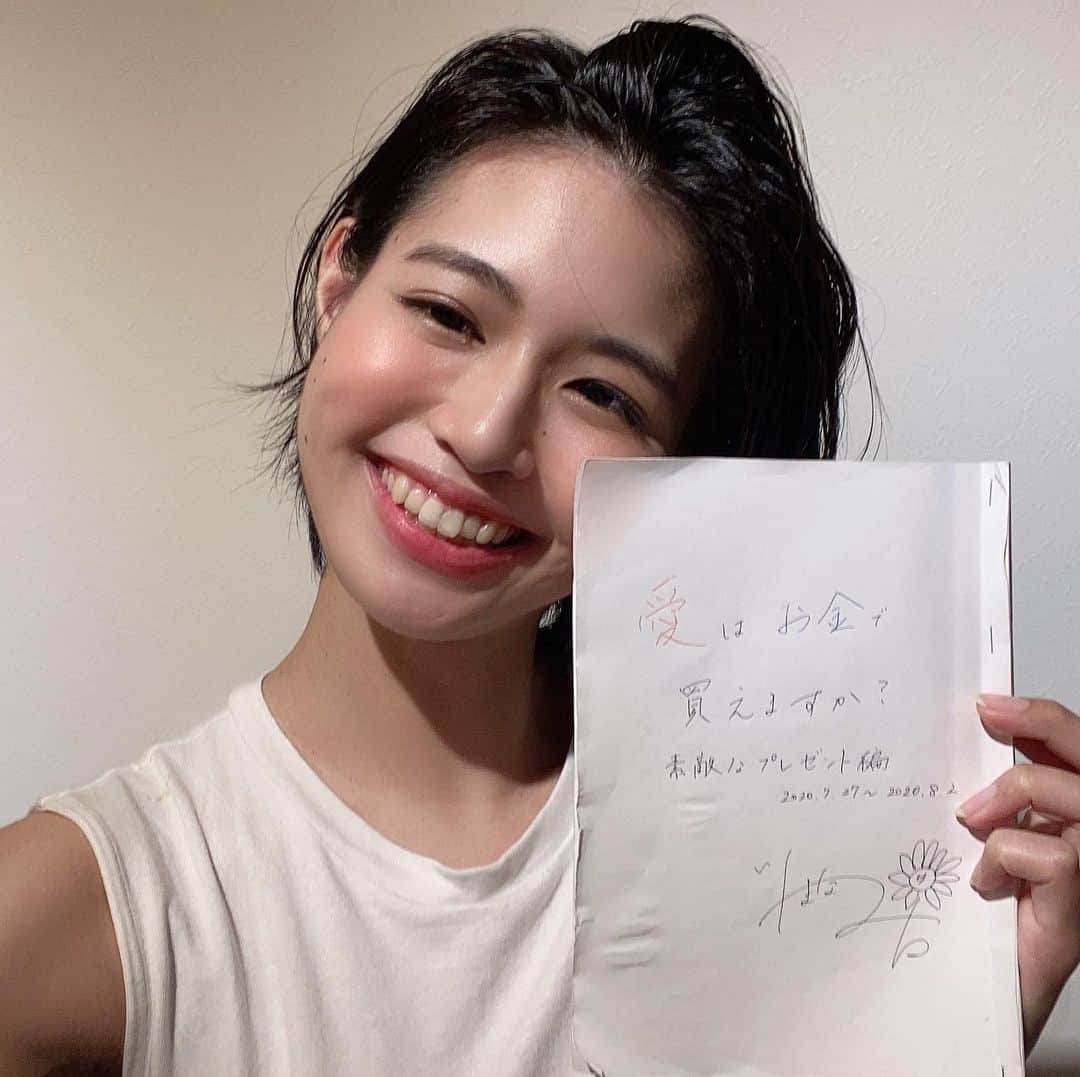 愛はお金で
買えますか?
素敵なプレゼント編
2020.7.27〜2020.8.2